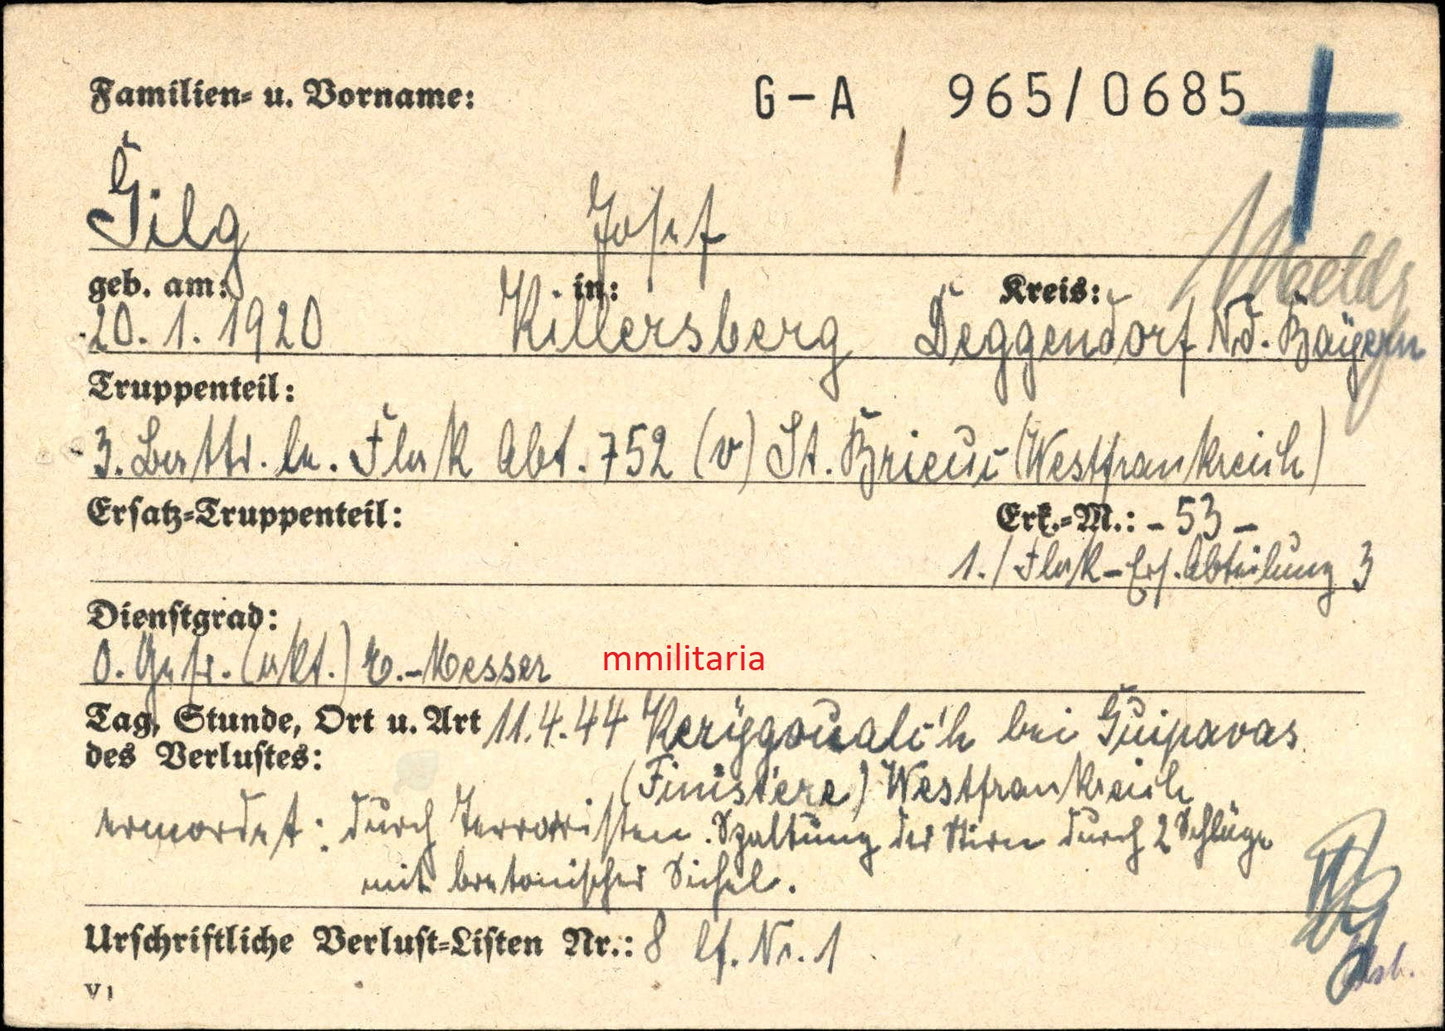 Familien- u. Vorname: G-A 965/0685
Gilg Josef
geb. am: in: Kreis:
20. 1. 1920 Killersberg Deggendorf Nd. Bayern
Truppenteil:
3. Battr. le. Flak Abt. 752 (v) St. Brieuc (Westfrankreich)
Ersatz-Truppenteil: Erk.-M.: - 53 -
1./Flak-Ers. Abteilung 3
Dienstgrad:
O. Gefr. (akt.) E.-Messer
mmilitaria
Tag, Stunde, Ort u. Art 11.4.44 bei Guipavas
des Verlustes: (Finistère) Westfrankreich
ermordet: durch Terroristen. Spaltung der Stirn durch 2 Schläge
mit bretonischer Sichel.
Urschriftliche Verlust-Listen Nr.: 8 lf. Nr. 1
V 1